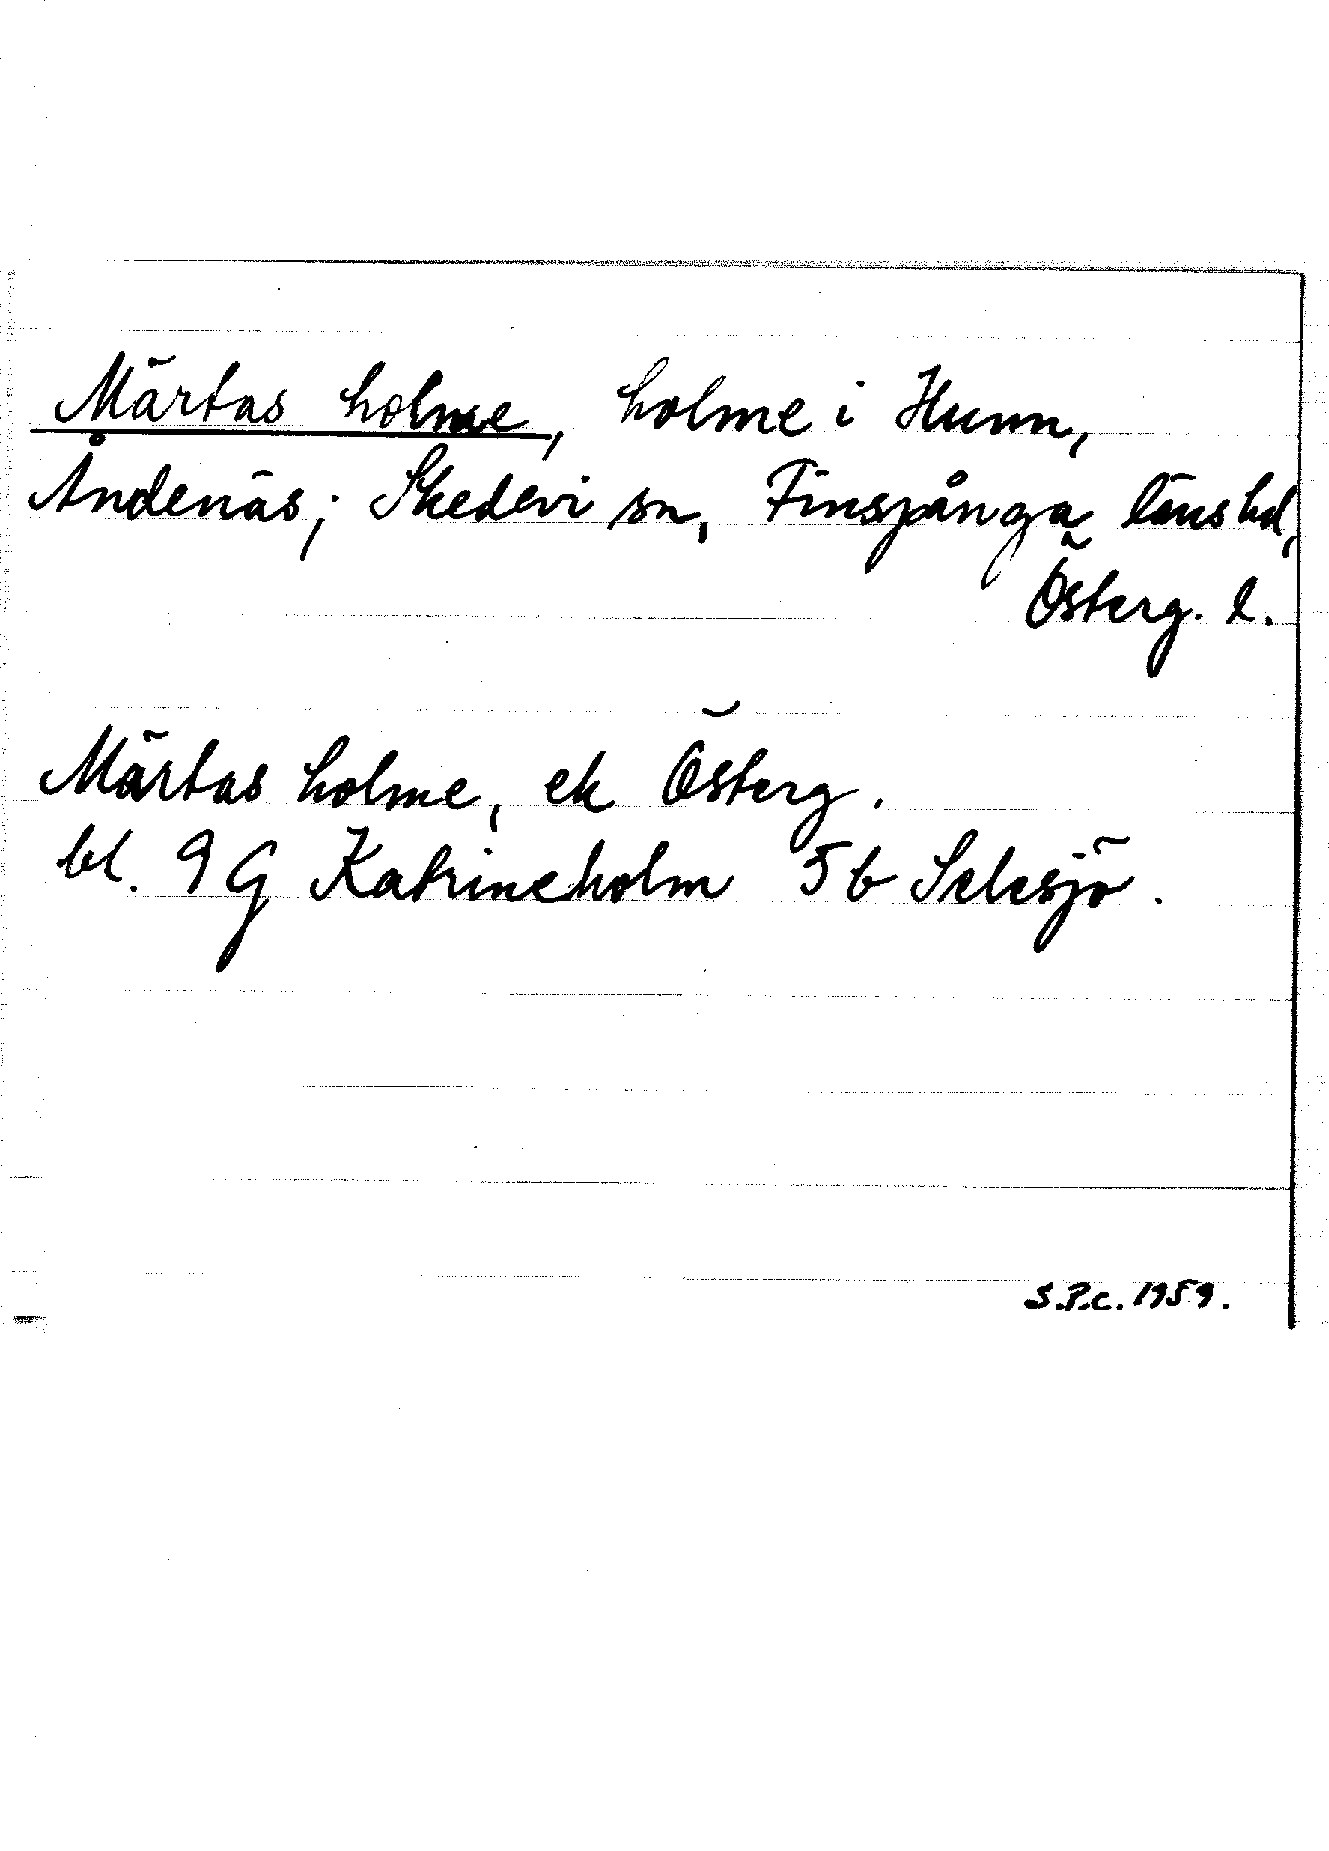 Märtas holme, holme i Hunn,
Åndenäs; Skedevi sn, Finspånga läns hd,
Österg. l.
Märtas holme, ek Österg.
bl. 9 G Katrineholm 5 b Selesjö.
S.P.c. 1959.